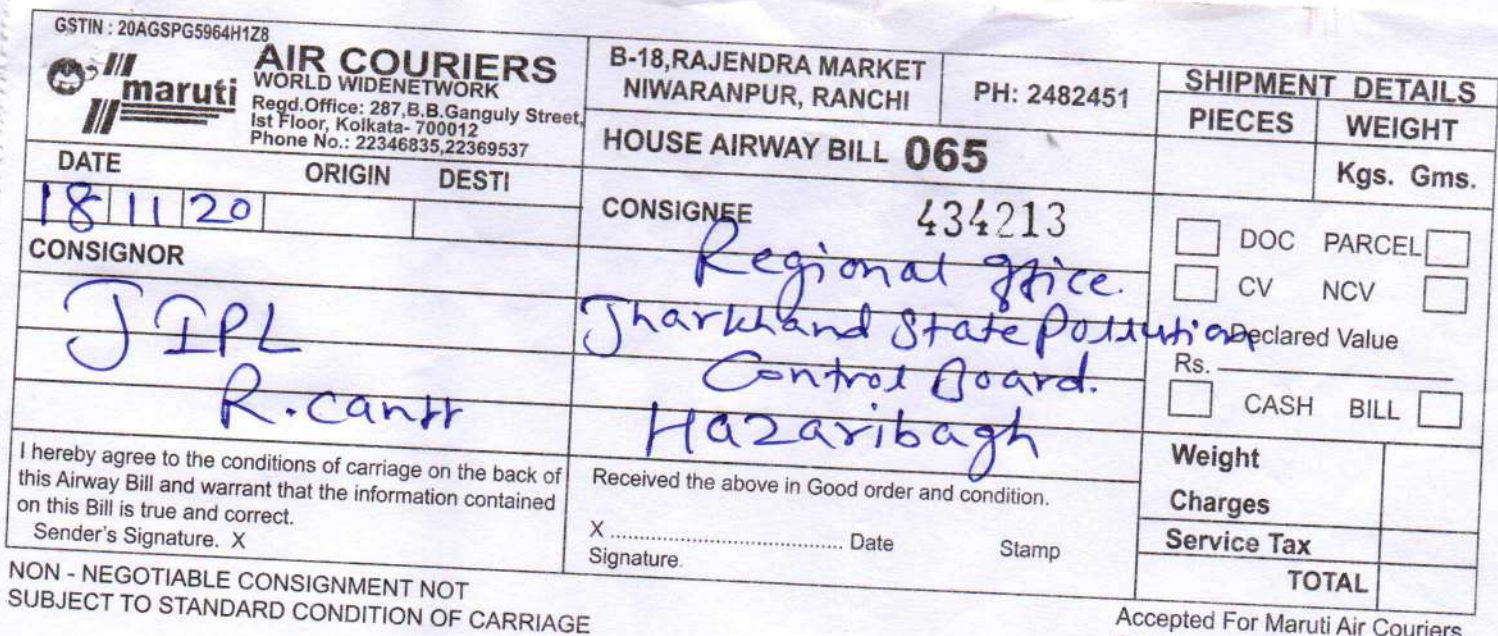 GSTIN : 20AGSPG5964H1Z8
maruti
AIR COURIERS
WORLD WIDENETWORK
Regd.Office: 287,B.B.Ganguly Street,
Ist Floor, Kolkata- 700012
Phone No.: 22346835,22369537
B-18,RAJENDRA MARKET
NIWARANPUR, RANCHI
PH: 2482451
HOUSE AIRWAY BILL 065
SHIPMENT DETAILS
PIECES WEIGHT
Kgs. Gms.
DATE ORIGIN DESTI
18 11 20
CONSIGNOR
JIPL
R.cantt
CONSIGNEE 434213
Regional Office.
Jharkhand State Pollution
Control Board.
Hazaribagh
DOC PARCEL
CV NCV
Declared Value
Rs.
CASH BILL
Weight
Charges
Service Tax
TOTAL
I hereby agree to the conditions of carriage on the back of
this Airway Bill and warrant that the information contained
on this Bill is true and correct.
Sender's Signature. X
Received the above in Good order and condition.
X ........................................ Date Stamp
Signature.
NON - NEGOTIABLE CONSIGNMENT NOT
SUBJECT TO STANDARD CONDITION OF CARRIAGE
Accepted For Maruti Air Couriers